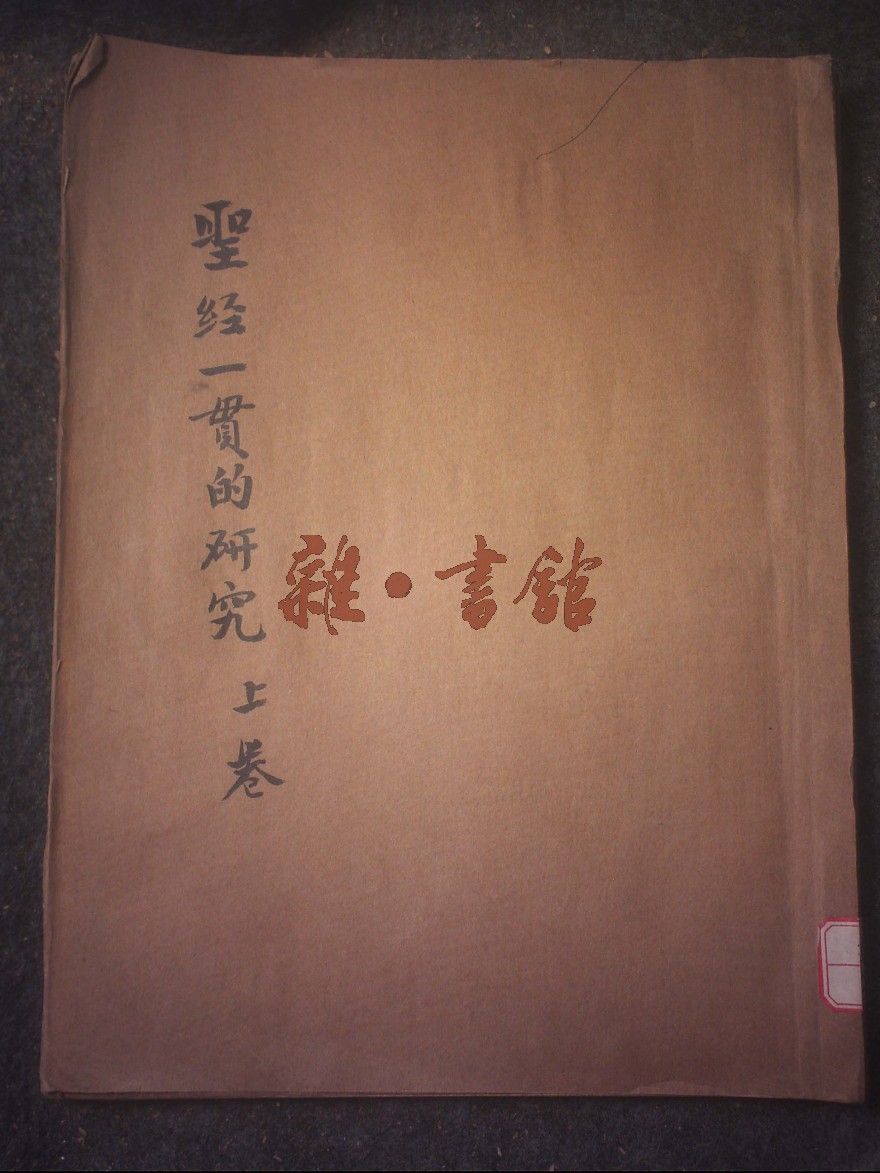 聖经一貫的研究 上卷
雜·書館